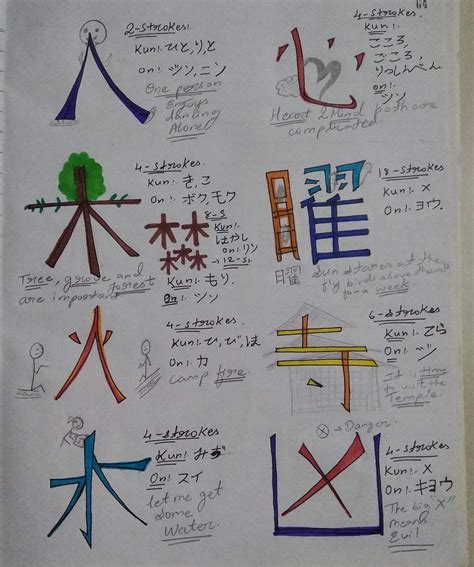 人
2-strokes.
Kun:. ひと,り,と
On:. ジン,ニン
One person
Enjoys
dancing
Alone!
心
4-strokes.
Kun:.
こころ,
ごころ,
りっしんべん.
On:.
シン
Heart & Mind both are
complicated
木
4-strokes.
Kun:. き,こ
On:. ボク,モク
林
8-S
Kun:
はやし
On:. リン
森
→ 12-S:
Kun:. もり.
On:. シン
Tree, grove and forest
are important
曜
曜
18-strokes
Kun:. ×
On:. ヨウ.
Sun stares at the
fly birds above them
for a week.
火
4-strokes.
Kun:. ひ,び,ほ
On:. カ
camp fire.
寺
6-strokes
Kun:. てら
On:. ジ
It is time
to visit the
Temple.
水
4-strokes
Kun:. みず
On:. スイ
let me get
some
Water.
凶
ⓧ → Danger.
4-strokes
Kun:. ×
On:. キョウ
The big "X"
means
Evil